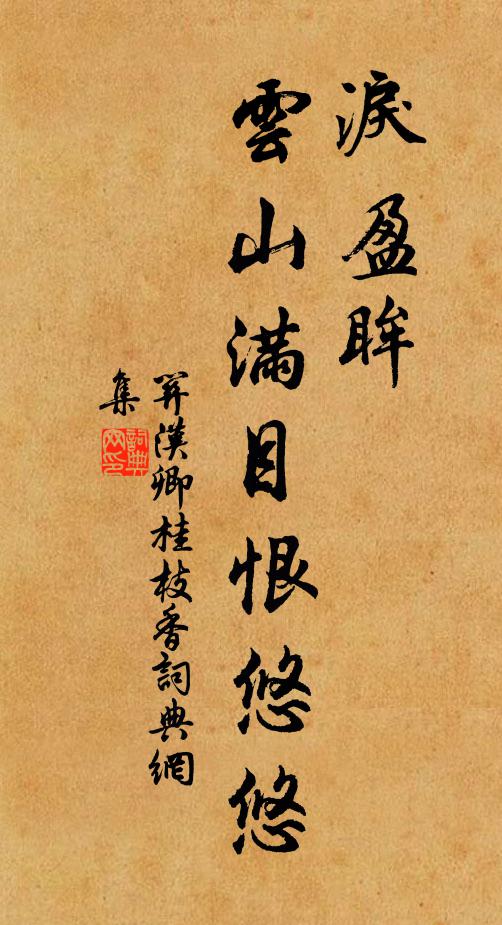 淚盈眸
雲山滿目恨悠悠
關漢卿桂枝香詞典網
集
詞典網印